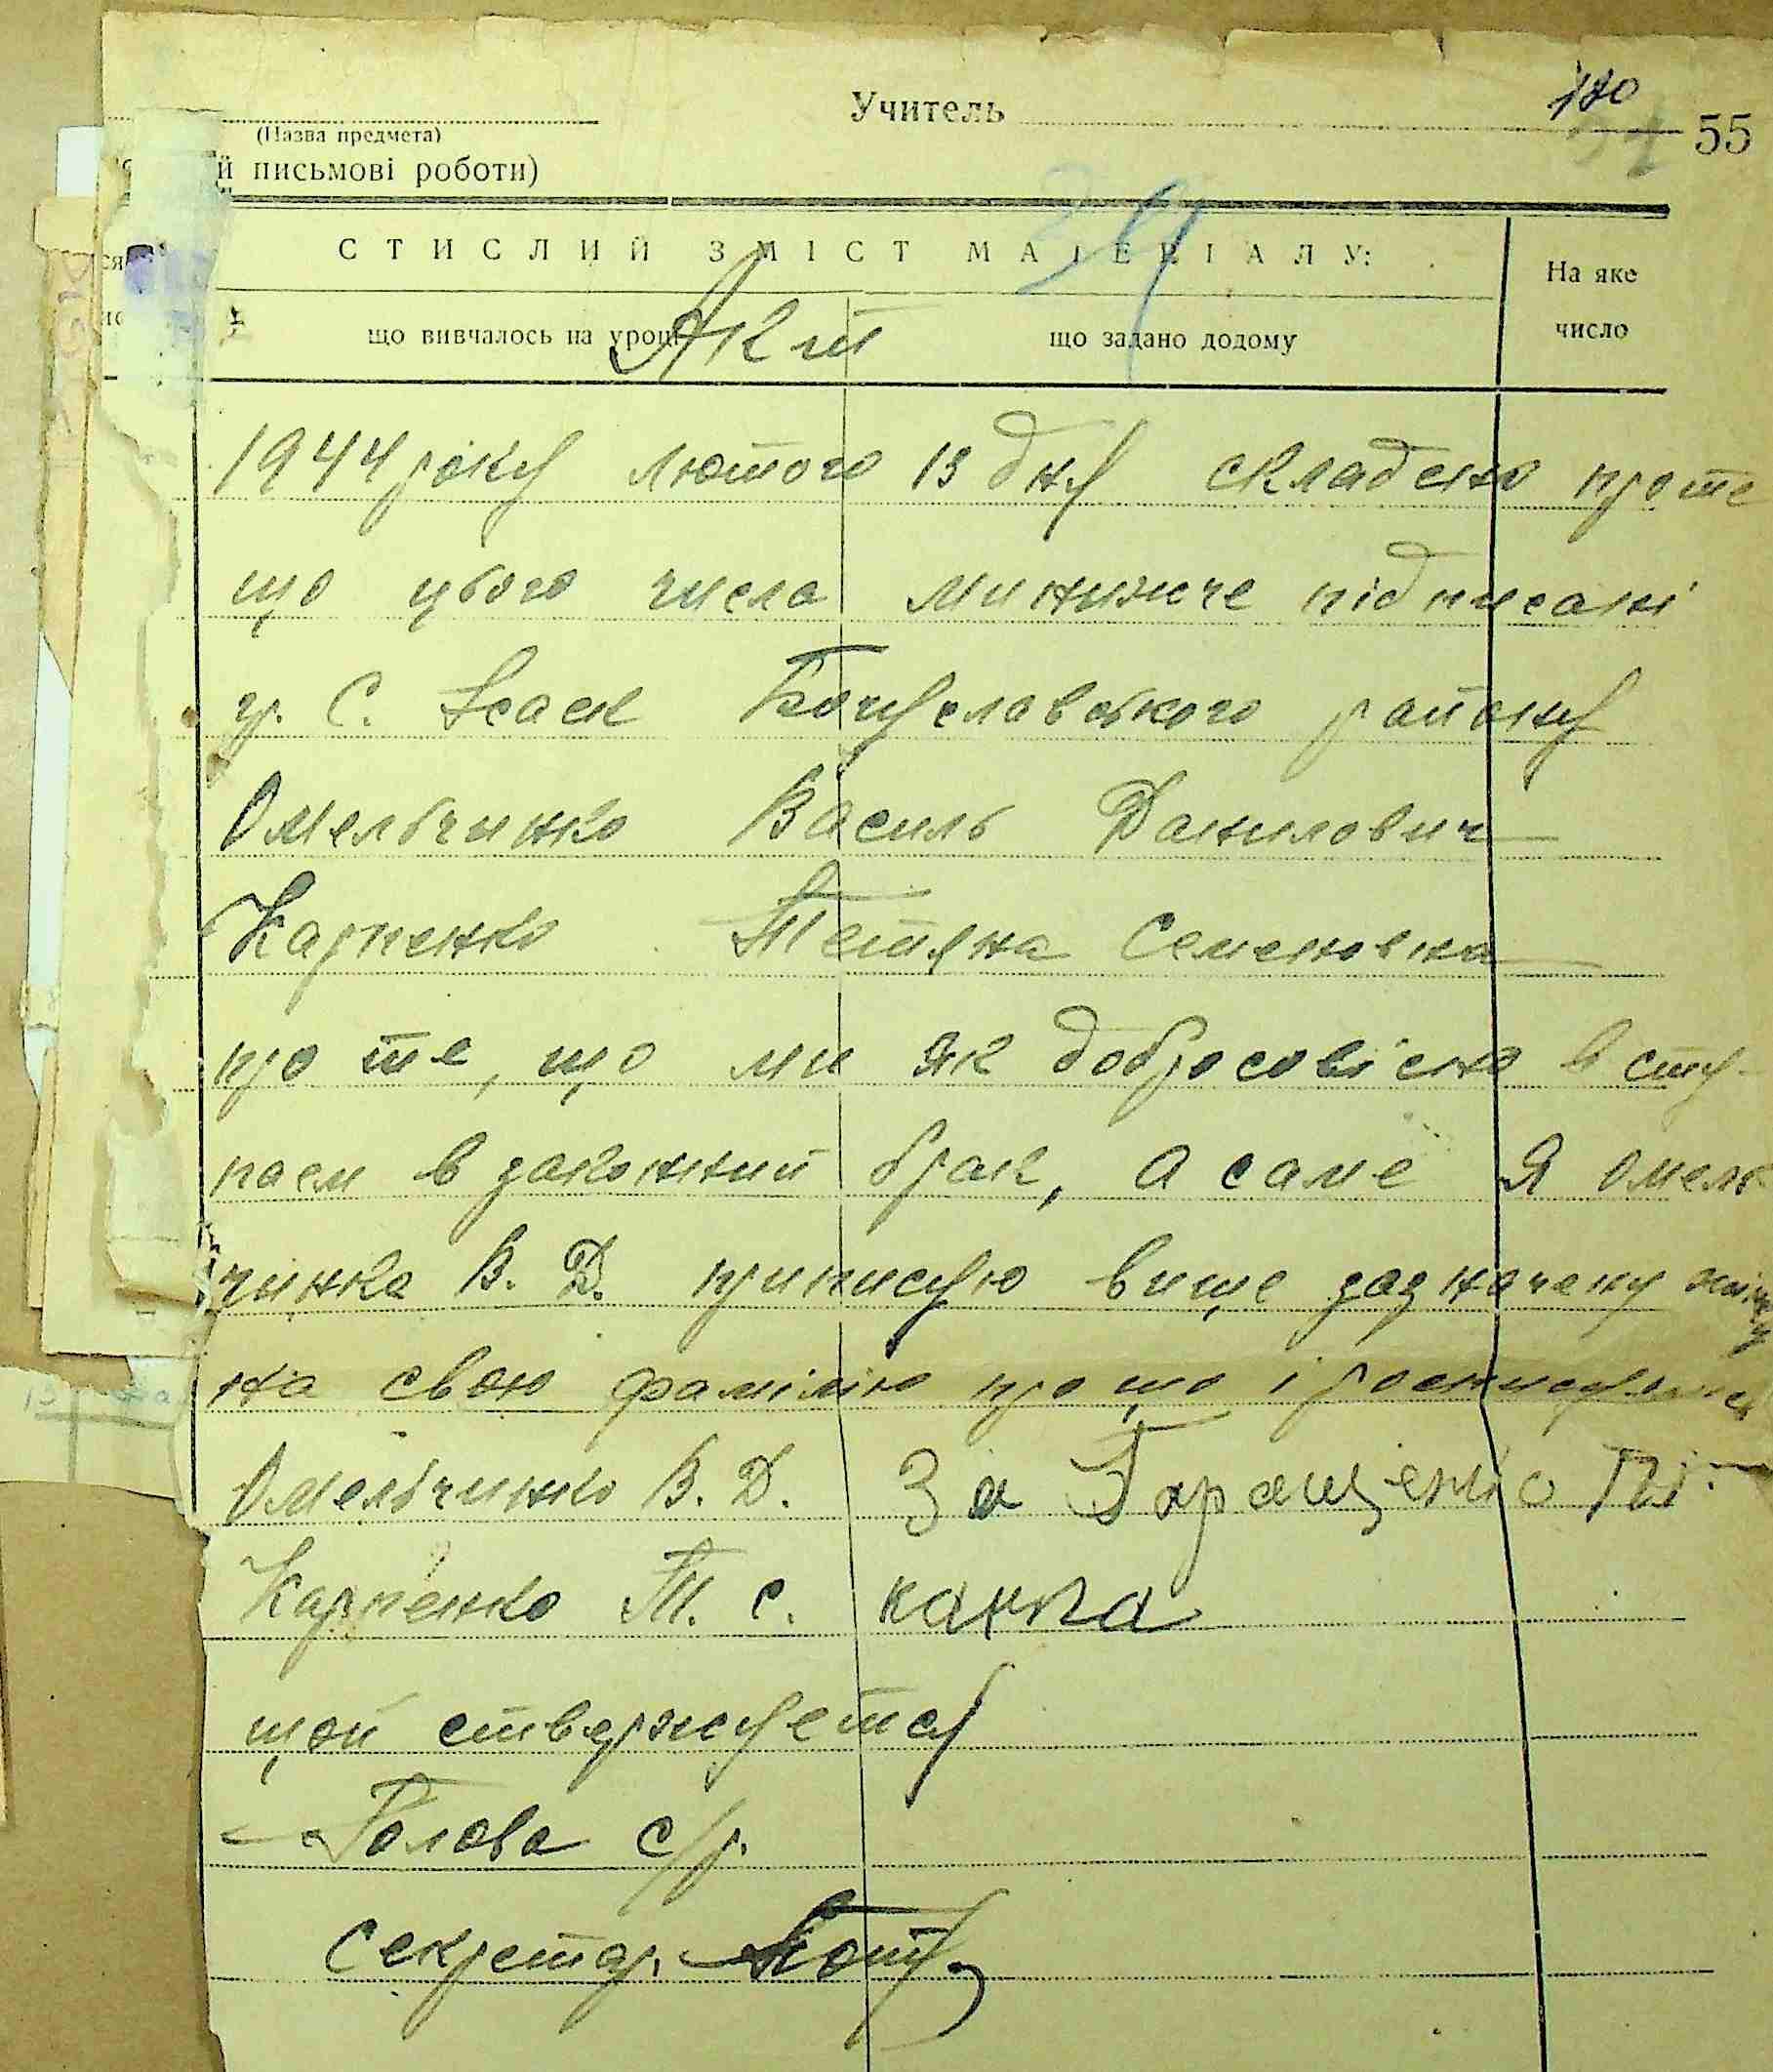 Учитель
170
55
(Назва предмета)
й письмові роботи)
39
СТИСЛИЙ ЗМІСТ МАТЕРІАЛУ:
На яке
число
що вивчалось на уроці
що задано додому
Акт
1944 року лютого 13 дну складено проте
що цього числа минижче підписані
гр. С. Ісаєк Богуславського району
Омельчинко Василь Данилович
Карпенко Тетяна Семеновна
про те, що ми як добросовісно всту-
паєм в законний брак, а саме Я Омель
чинко В. Д. приписую вище зазначену жінку
на свою фамілію про що і росписуємся
Омельчинко В. Д. За Геращенко
Карпенко Т. С.
що й ствержуетсу
Голова с/р.
Секретар.